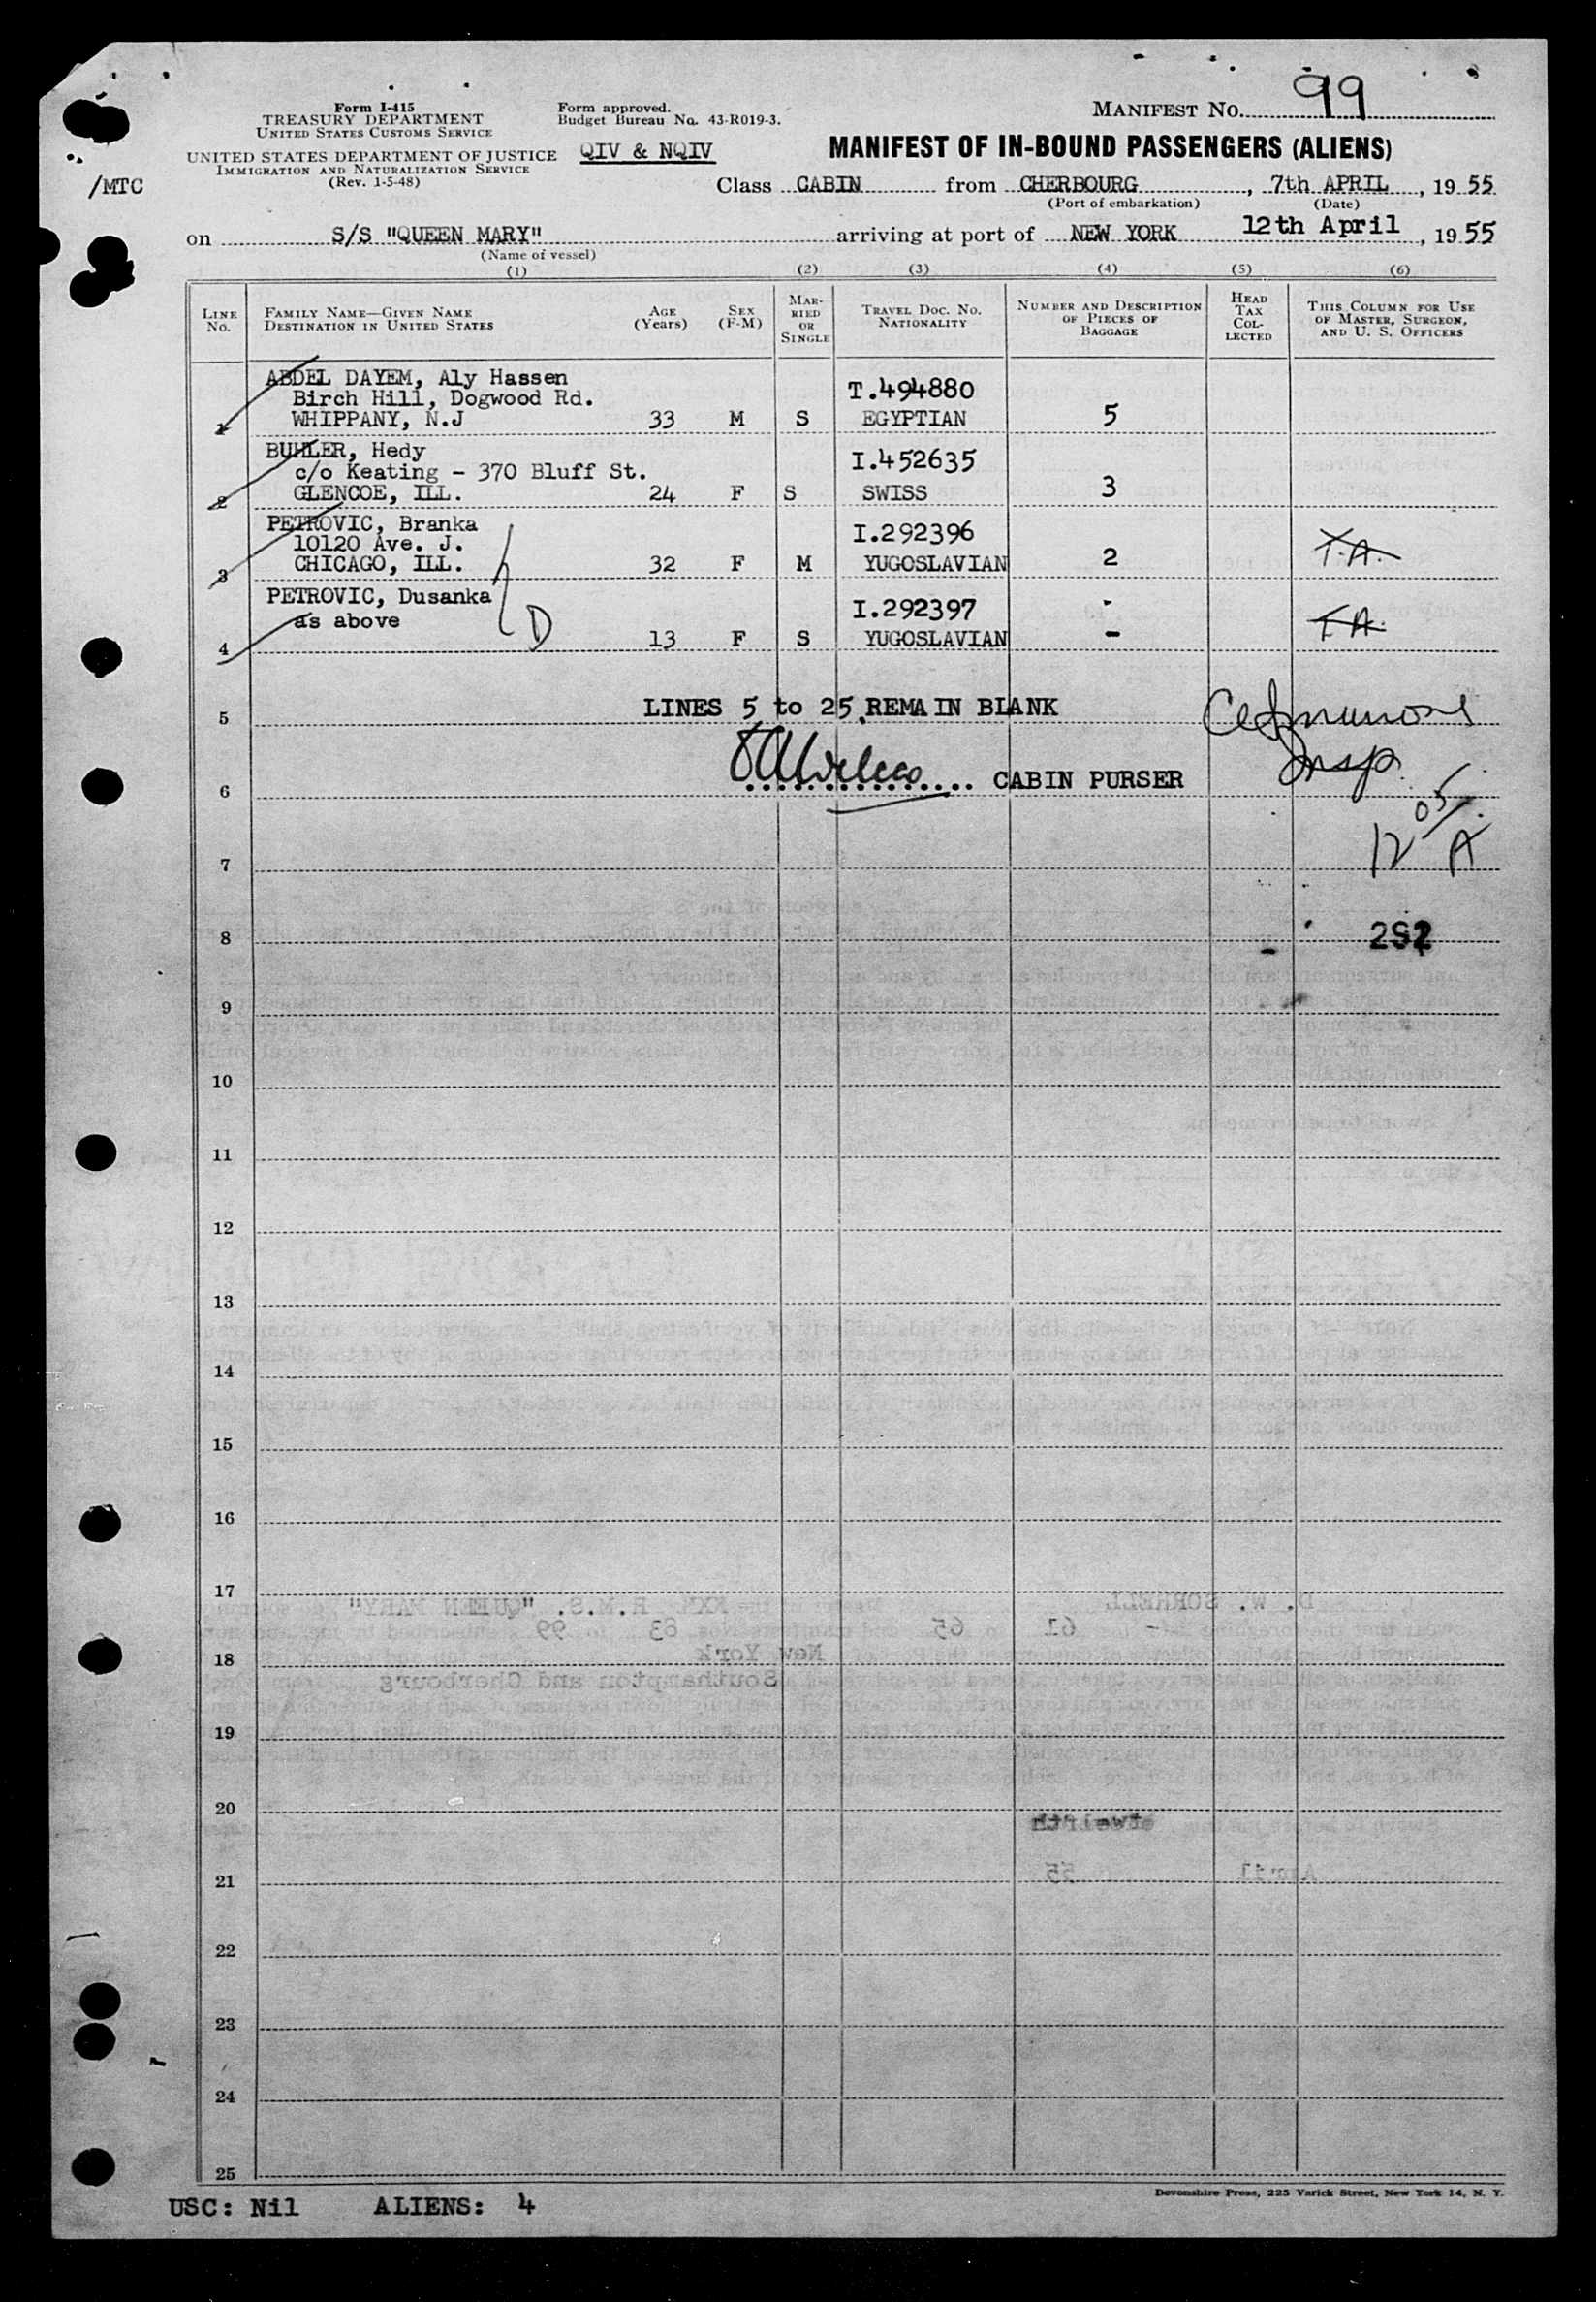 Form I-415
TREASURY DEPARTMENT
UNITED STATES CUSTOMS SERVICE
UNITED STATES DEPARTMENT OF JUSTICE
IMMIGRATION AND NATURALIZATION SERVICE
(Rev. 1-5-48)
/MTC
Form approved.
Budget Bureau No. 43-R019-3.
QIV & NQIV
MANIFEST NO. 99
MANIFEST OF IN-BOUND PASSENGERS (ALIENS)
Class CABIN from CHERBOURG, 7th APRIL, 1955
(Port of embarkation) (Date)
on S/S "QUEEN MARY" arriving at port of NEW YORK 12th April, 1955
(Name of vessel)
(1) (2) (3) (4) (5) (6)
LINE NO.
FAMILY NAME—GIVEN NAME
DESTINATION IN UNITED STATES
AGE (Years)
SEX (F-M)
MARRIED OR SINGLE
TRAVEL DOC. NO.
NATIONALITY
NUMBER AND DESCRIPTION OF PIECES OF BAGGAGE
HEAD TAX COLLECTED
THIS COLUMN FOR USE OF MASTER, SURGEON, AND U. S. OFFICERS
ABDEL DAYEM, Aly Hassen T.494880
Birch Hill, Dogwood Rd.
1 WHIPPANY, N.J 33 M S EGYPTIAN 5
BUHLER, Hedy I.452635
c/o Keating - 370 Bluff St.
2 GLENCOE, ILL. 24 F S SWISS 3
PETROVIC, Branka I.292396
10120 Ave. J.
3 CHICAGO, ILL. 32 F M YUGOSLAVIAN 2 T.A.
PETROVIC, Dusanka I.292397 -
as above D
4 13 F S YUGOSLAVIAN - T.A.
LINES 5 to 25 REMAIN BLANK
5
CABIN PURSER Insp.
6
05
12 A
7
8
9
10
11
12
13
14
15
16
17
18
19
20
21
22
23
24
25
Devonshire Press, 225 Varick Street, New York 14, N. Y.
USC: Nil ALIENS: 4